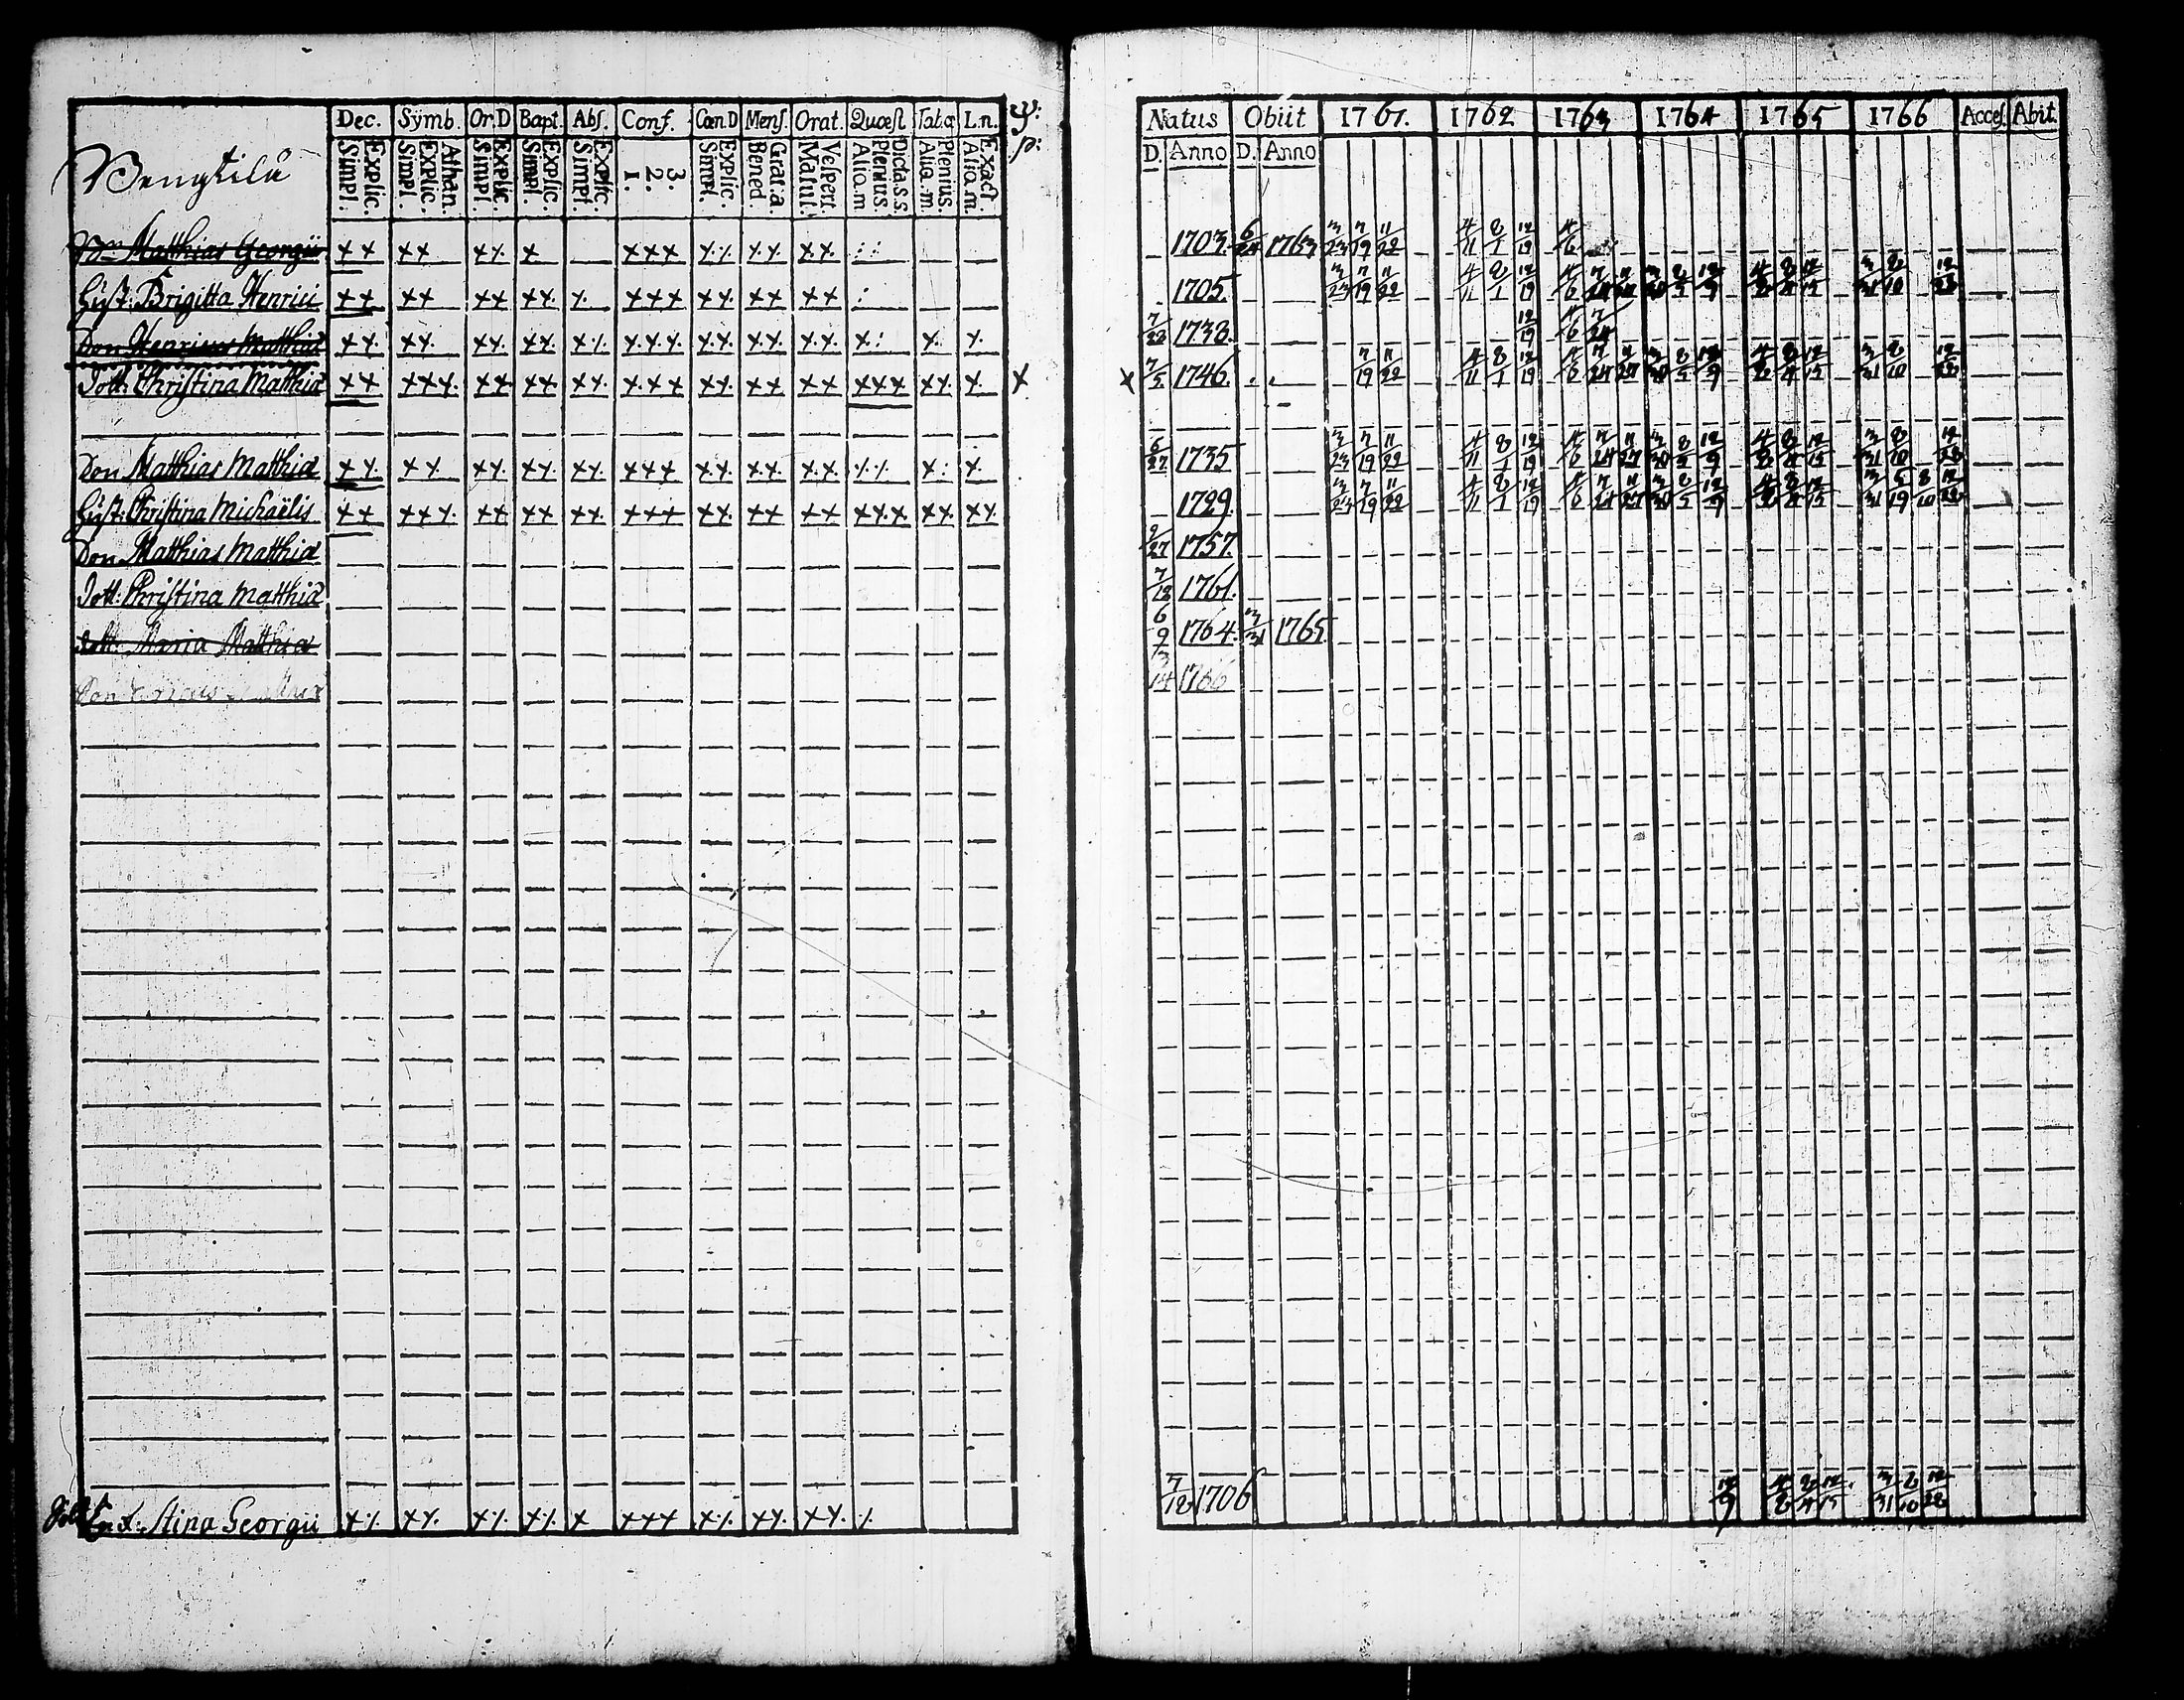 Dec. Symb. Or.D Bapt. Abs. Conf. Cœn D Mens. Orat. Quæst Tab.œ L.n.
Explic. Simpl. Athan. Explic. Simpl. Explic. Simpl. Explic. Simpl. Explic. Simpl. 3. 2. 1. Explic. Simpl. Grat: a. Bened. Vespert. Matut. Dicta. s.s. Plenius. Aliq. m Plenius. Aliq. m. Exact. Aliq. m.
Bengtilä
Matthias Georgii xx xx x⁒ x xxx ⁒⁒ ⁒⁒ xx.
Hust: Brigitta Henrici xx xx xx x⁒ ⁒ xxx x⁒ xx xx
Don Henricus Matthiæ x⁒ x⁒ x⁒ x⁒ x⁒ ⁒⁒⁒ x⁒ x⁒ x⁒ x: x. ⁒
Dott: Christina Matthiæ xx xx⁒ xx xx x⁒ xxx x⁒ xx xx xxx x⁒ x. x
Don Matthias Matthiæ x⁒ x⁒ x⁒ x⁒ x⁒ xxx x⁒ x⁒ x⁒ ⁒⁒ x: x.
Hust: Christina Michaëlis xx xx⁒ xx xx x⁒ xxx xx xx xx x⁒x xx. x⁒
Don Matthias Matthiæ
Dott: Christina Matthiæ
Dott: Maria Matthiæ
Don
Stina Georgii x⁒ x⁒ x⁒ x⁒ x xxx x⁒ x⁒ x⁒ ⁒
Natus Obiit 1761. 1762 1763 1764 1765 1766 Acces. Abit.
D. Anno D. Anno
1703. 6/24 1763 3/23 7/19 11/22 4/11 8/1 12/19 4/6
1705. 3/23 7/19 11/22 4/11 8/1 12/19 4/6 7/24 11/27 3/30 8/5 12/9 4/8 8/4 12/15 3/31 8/10 12/28
7/22 1738. 12/19 4/6 7/24
x 7/5 1746. 7/19 11/22 4/11 8/1 12/19 4/6 7/24 11/27 3/30 8/5 12/9 4/8 8/4 12/15 3/31 8/10 12/28
6/27 1735 3/23 7/19 11/22 4/11 8/1 12/19 4/6 7/24 11/27 3/30 8/5 12/9 4/8 8/4 12/15 3/31 8/10 12/28
1729. 3/23 7/19 11/22 4/11 8/1 12/19 4/6 7/24 11/27 3/30 8/5 12/9 4/8 8/4 12/15 3/31 5/19 8/10 12/28
9/27 1757.
7/18 1761.
6/9 1764. 3/31 1765
3/14 1766
7/18 1706 12/9 4/8 8/4 12/15 3/31 8/10 12/28